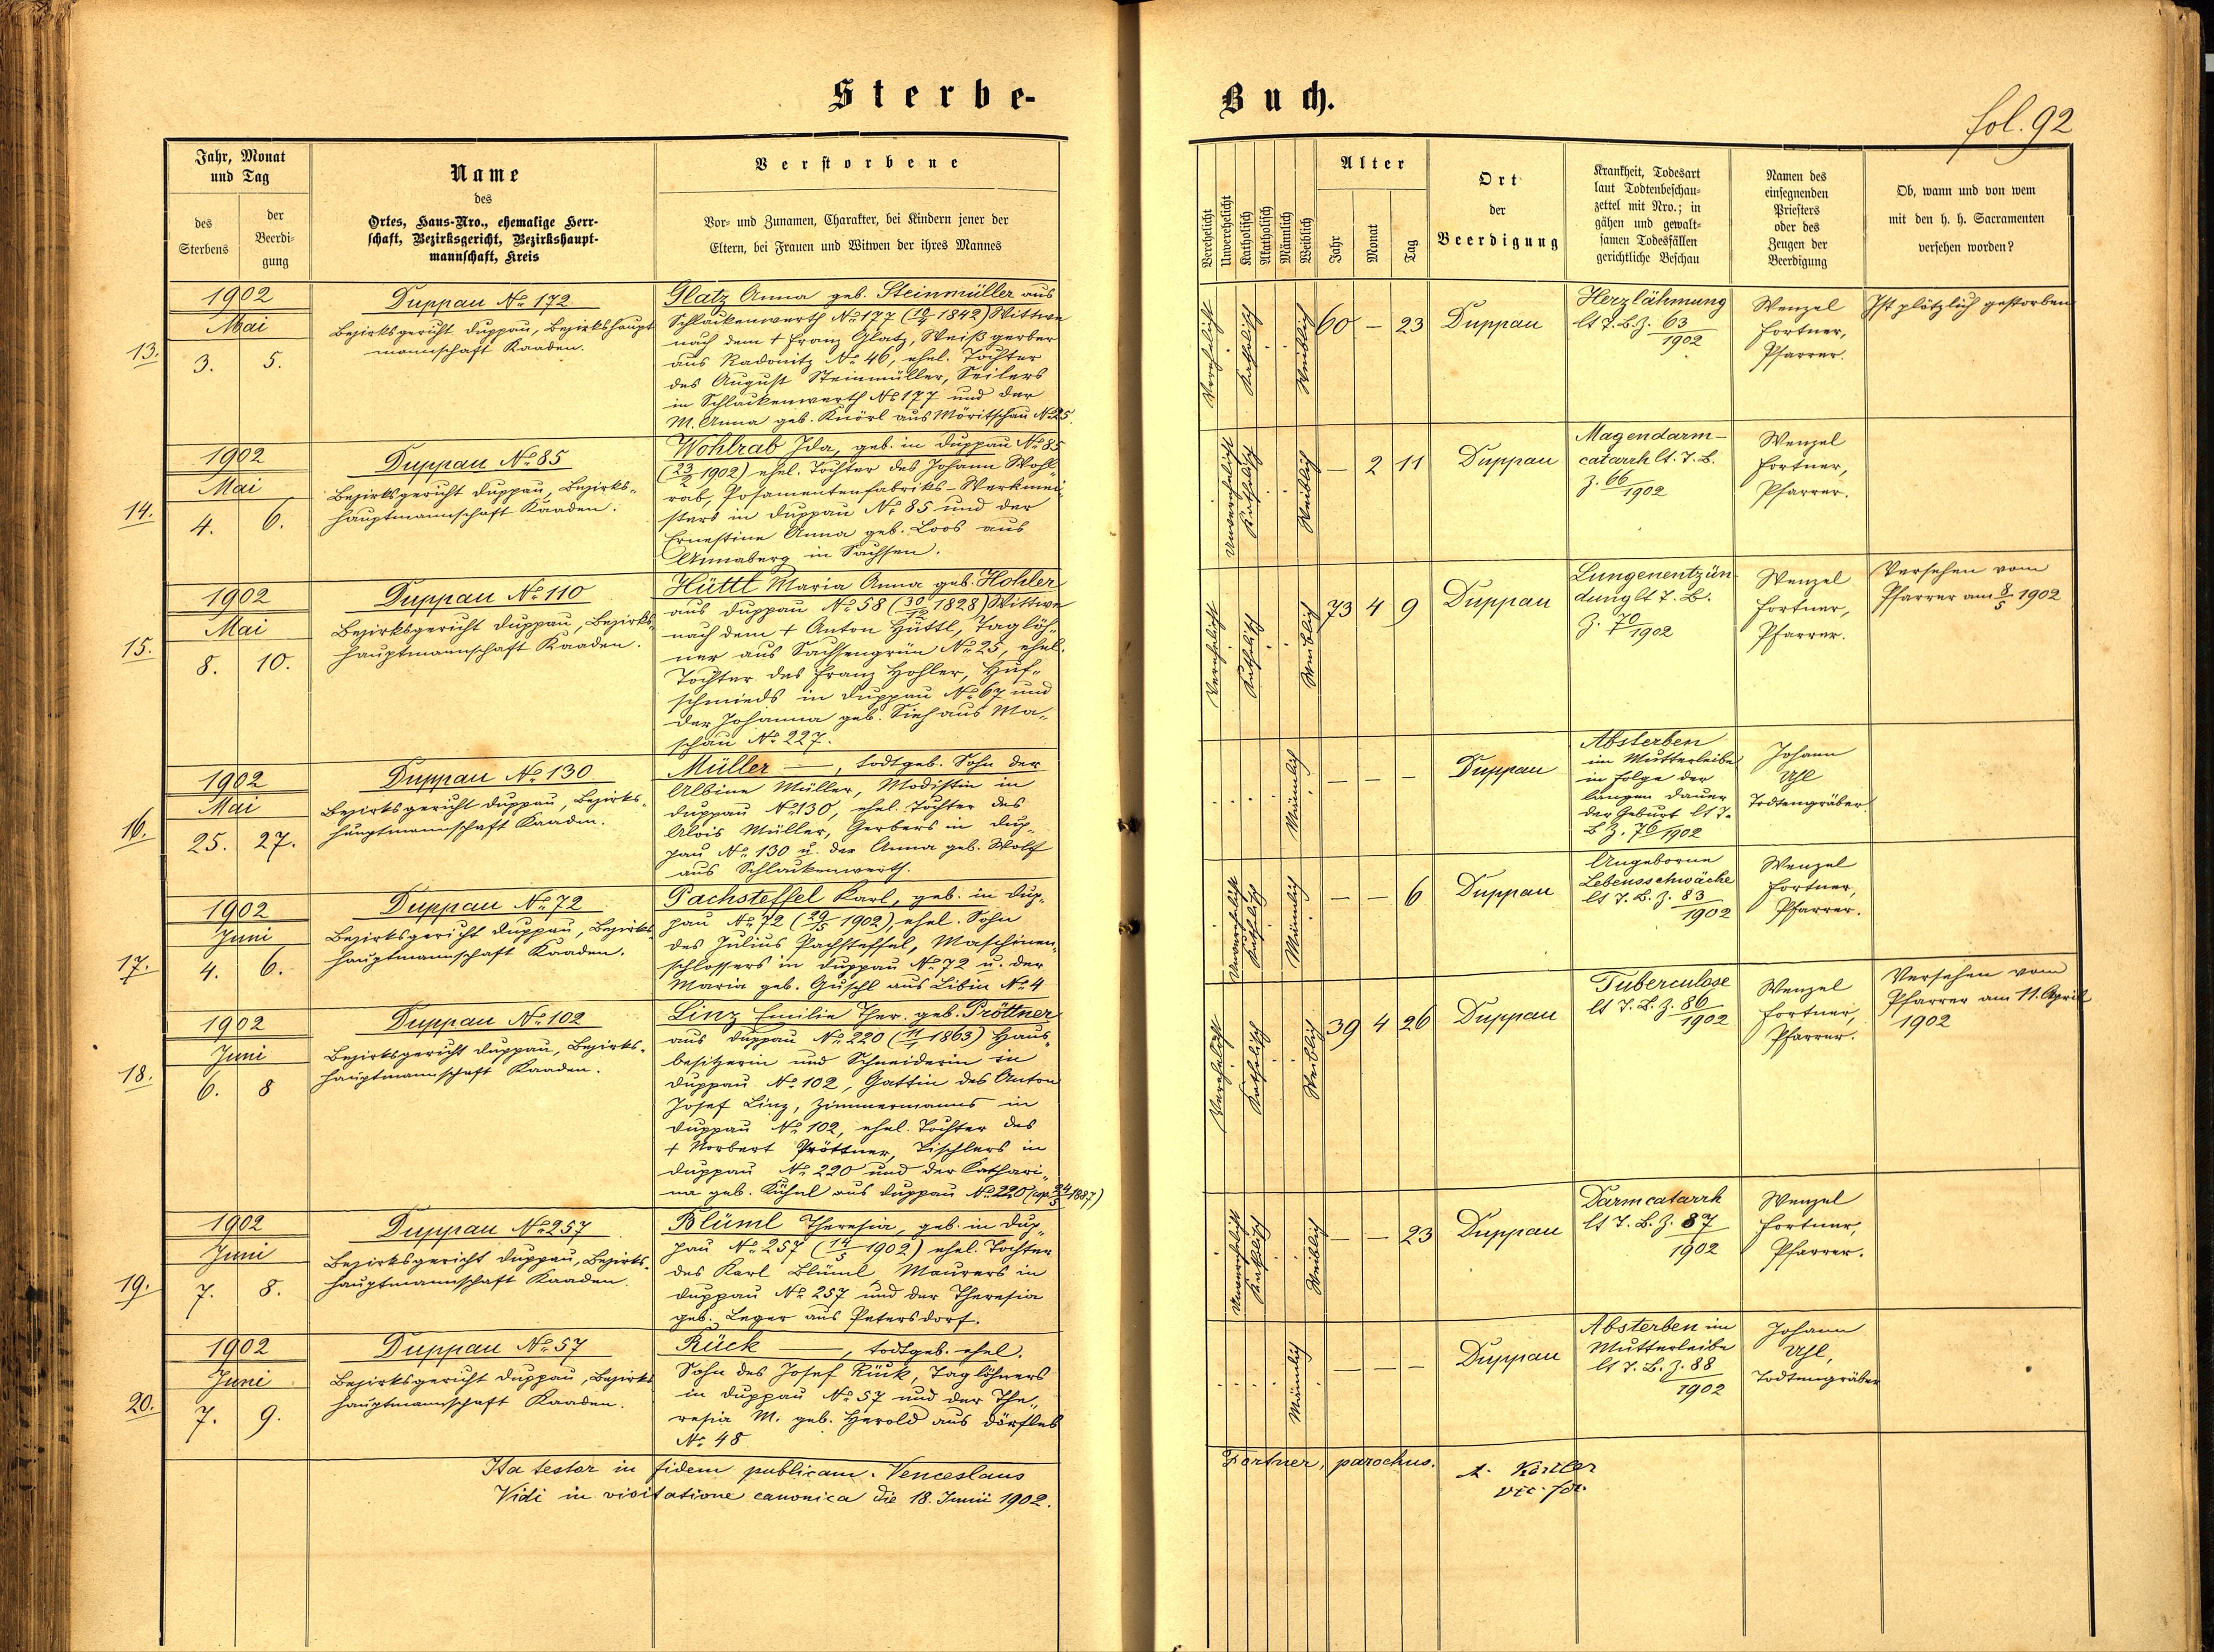 Sterbe-
Buch.
fol. 92
Jahr, Monat
und Tag
des
Sterbens
der
Beerdi-
gung
Name
des
Ortes, Haus-Nro., ehemalige Herr-
schaft, Bezirksgericht, Bezirkshaupt-
mannschaft, Kreis
Verstorbene
Vor- und Zunamen, Charakter, bei Kindern jener der
Eltern, bei Frauen und Witwen der ihres Mannes
Verehelicht
Unverehelicht
Katholisch
Akatholisch
Männlich
Weiblich
Alter
Jahr
Monat
Tag
Ort
der
Beerdigung
Krankheit, Todesart
laut Todtenbeschau-
zettel mit Nro.; in
gähen und gewalt-
samen Todesfällen
gerichtliche Beschau
Namen des
einsegnenden
Priesters
oder des
Zeugen der
Beerdigung
Ob, wann und von wem
mit den h. h. Sacramenten
versehen worden?
13.
1902
Mai
3. 5.
Duppau No. 172
Bezirksgericht Duppau, Bezirkshaupt
mannschaft Kaaden.
Glatz Anna geb. Steinmüller aus
Schlackenwerth No. 177 (10/4 1842) Wittwe
nach dem + Franz Glatz, Weißgerber
aus Radonitz No. 46, ehel. Tochter
des August Steinmüller, Seilers
in Schlackenwerth No 177 und der
M. Anna geb. Knörl aus Möritschau No 25.
Verehelicht
Katholisch
Weiblich
60 — 23
Duppau
Herzlähmung
lt T. B. Z. 63/1902
Wenzel
Fortner,
Pfarrer.
Ist plötzlich gestorben
14.
1902
Mai
4. 6.
Duppau No. 85
Bezirksgericht Duppau, Bezirks-
hauptmannschaft Kaaden.
Wohlrab Ida, geb. in Duppau No. 85
(23/2 1902) ehel. Tochter des Johann Wohl-
rab, Posamentenfabriks-Werkmei-
sters in Duppau No. 85 und der
Ernestine Anna geb. Loos aus
Annaberg in Sachsen.
Unverehelicht
Katholisch
Weiblich
— 2 11
Duppau
Magendarm-
catarrh lt. T. B.
Z. 66/1902
Wenzel
Fortner,
Pfarrer.
15.
1902
Mai
8. 10.
Duppau No. 110
Bezirksgericht Duppau, Bezirks-
hauptmannschaft Kaaden.
Hüttl Maria Anna geb. Hohler
aus Duppau No. 58 (30/12 1828) Wittwe
nach dem + Anton Hüttl, Taglöh-
ner aus Sachsengrün No. 25, ehel.
Tochter des Franz Hohler, Huf-
schmieds in Duppau No. 67 und
der Johanna geb. Sieh aus Ma-
schau No. 227.
Verehelicht
Katholisch
Weiblich
73 4 9
Duppau
Lungenentzün-
dung lt T. B.
Z. 70/1902
Wenzel
Fortner,
Pfarrer.
Versehen vom
Pfarrer am 8/5 1902
16.
1902
Mai
25. 27.
Duppau No. 130
Bezirksgericht Duppau, Bezirks-
hauptmannschaft Kaaden.
Müller —, todtgeb. Sohn der
Albine Müller, Modistin in
Duppau No. 130, ehel. Tochter des
Alois Müller, Gerbers in Dup-
pau No. 130 u. der Anna geb. Wolf
aus Schlackenwerth.
Männlich
— — —
Duppau
Absterben
im Mutterleibe
in Folge der
langen Dauer
der Geburt lt T.
B Z. 76/1902
Johann
Uhl
Todtengräber
17.
1902
Juni
4. 6.
Duppau No. 72
Bezirksgericht Duppau, Bezirks-
hauptmannschaft Kaaden.
Pachsteffel Karl, geb. in Dup-
pau No. 72 (29/5 1902), ehel. Sohn
des Julius Pachsteffel, Maschinen-
schlossers in Duppau No. 72 u. der
Maria geb. Guschl aus Libin No. 4
Unverehelicht
Katholisch
Männlich
— — 6
Duppau
Angeborne
Lebensschwäche
lt T. B. Z. 83/1902
Wenzel
Fortner,
Pfarrer.
18.
1902
Juni
6. 8
Duppau No. 102
Bezirksgericht Duppau, Bezirks-
hauptmannschaft Kaaden.
Linz Emilie Ther. geb. Pröttner
aus Duppau No. 220 (11/1 1863) Haus-
besitzerin und Schneiderin in
Duppau No. 102, Gattin des Anton
Josef Linz, Zimmermanns in
Duppau No. 102, ehel. Tochter des
+ Norbert Pröttner, Tischlers in
Duppau No. 220 und der Kathari-
na geb. Kühnl aus Duppau No. 220 (cop. 24/5 1887)
Verehelicht
Katholisch
Weiblich
39 4 26
Duppau
Tuberculose
lt T. B. Z. 86/1902
Wenzel
Fortner,
Pfarrer.
Versehen vom
Pfarrer am 11. April
1902
19.
1902
Juni
7. 8.
Duppau No. 257
Bezirksgericht Duppau, Bezirks-
hauptmannschaft Kaaden.
Blüml Theresia, geb. in Dup-
pau No. 257 (14/5 1902) ehel. Tochter
des Karl Blüml, Maurers in
Duppau No. 257 und der Theresia
geb. Leger aus Petersdorf.
Unverehelicht
Katholisch
Weiblich
— — 23
Duppau
Darmcatarrh
lt T. B. Z. 87/1902
Wenzel
Fortner,
Pfarrer.
20.
1902
Juni
7. 9.
Duppau No. 57
Bezirksgericht Duppau, Bezirks
hauptmannschaft Kaaden.
Rück —, todtgeb. ehel.
Sohn des Josef Rück, Taglöhners
in Duppau No. 57 und der The-
resia M. geb. Herold aus Dörfles
No. 48
Männlich
— — —
Duppau
Absterben im
Mutterleibe
lt T. B. Z. 88/1902
Johann
Uhl,
Todtengräber
Ita testor in fidem publicam. Venceslaus Fortner, parochus.
Vidi in visitatione canonica die 18. Junii 1902.
vic. for.